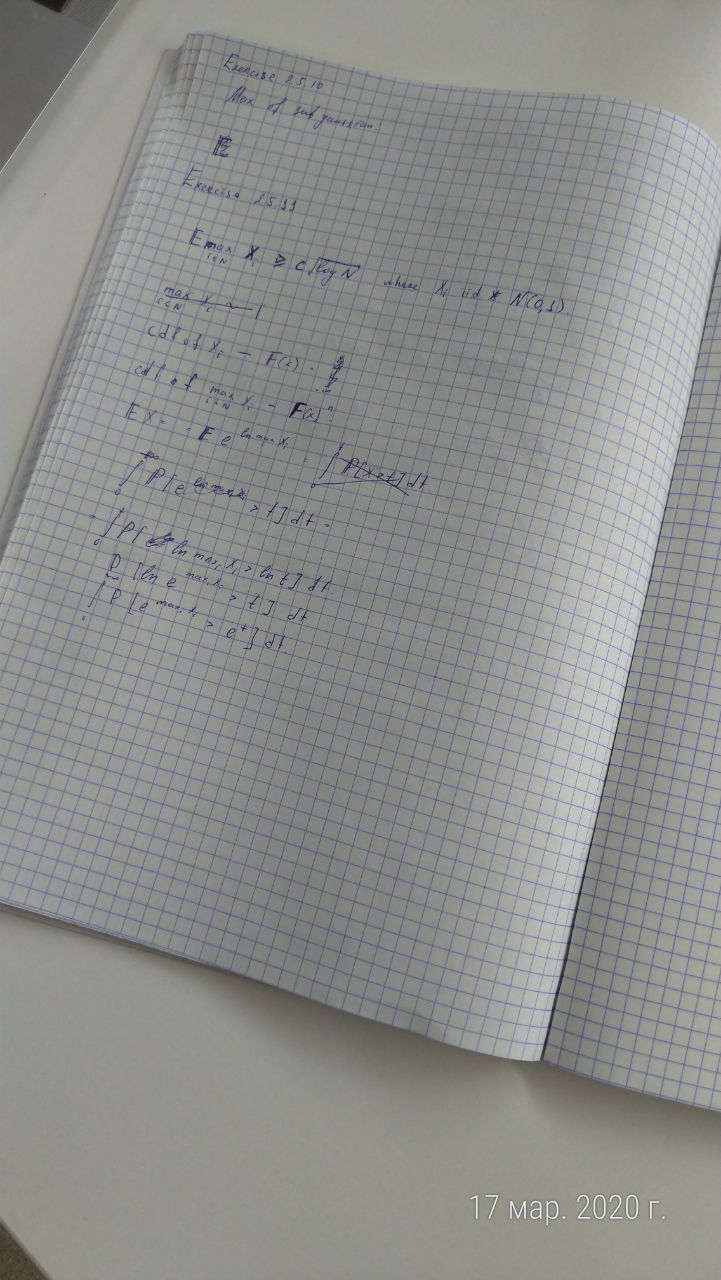 Exercise 2.5.10
Max of subgaussian.
E
Exercise 2.5.11
E max X_i ≥ c √log N where X_i iid N(0,1).
i≤N
max X_i
i≤N
cdf of X_i — F(x) =
cdf of max X_i — F(x)^n
i≤N
E X = = E e^{ln max X_i} = ∫ P[X>t] dt
∫ P[e > t] dt =
= ∫ P[ ln max_i X_i > ln t] dt
P [ln e^{max_i X_i} > t] dt
∫ P [e^{max_i X_i} > e^t] dt
17 мар. 2020 г.